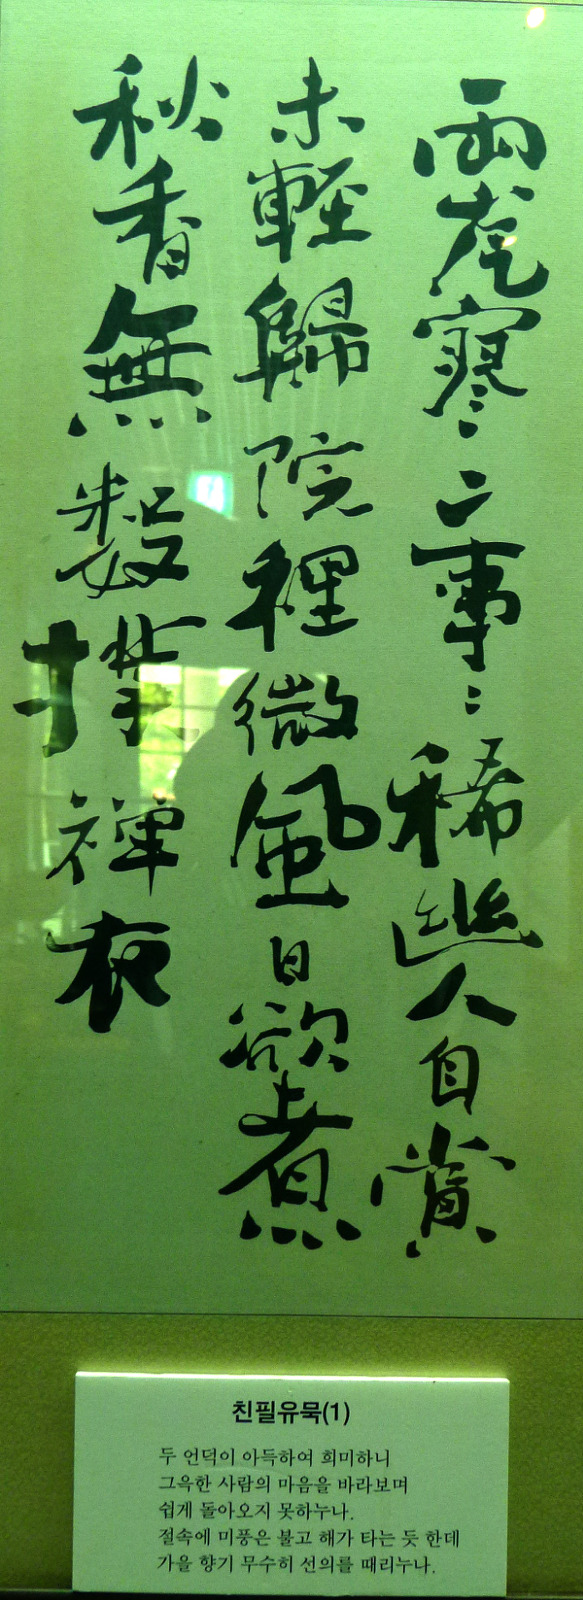 両岸寥〻事〻稀幽人自賞
未軽歸院裡微風日欲煮
秋香無数撲禅衣
친필유묵(1)
두 언덕이 아득하여 희미하니
그윽한 사람의 마음을 바라보며
쉽게 돌아오지 못하누나.
절속에 미풍은 불고 해가 타는 듯 한데
가을 향기 무수히 선의를 때리누나.